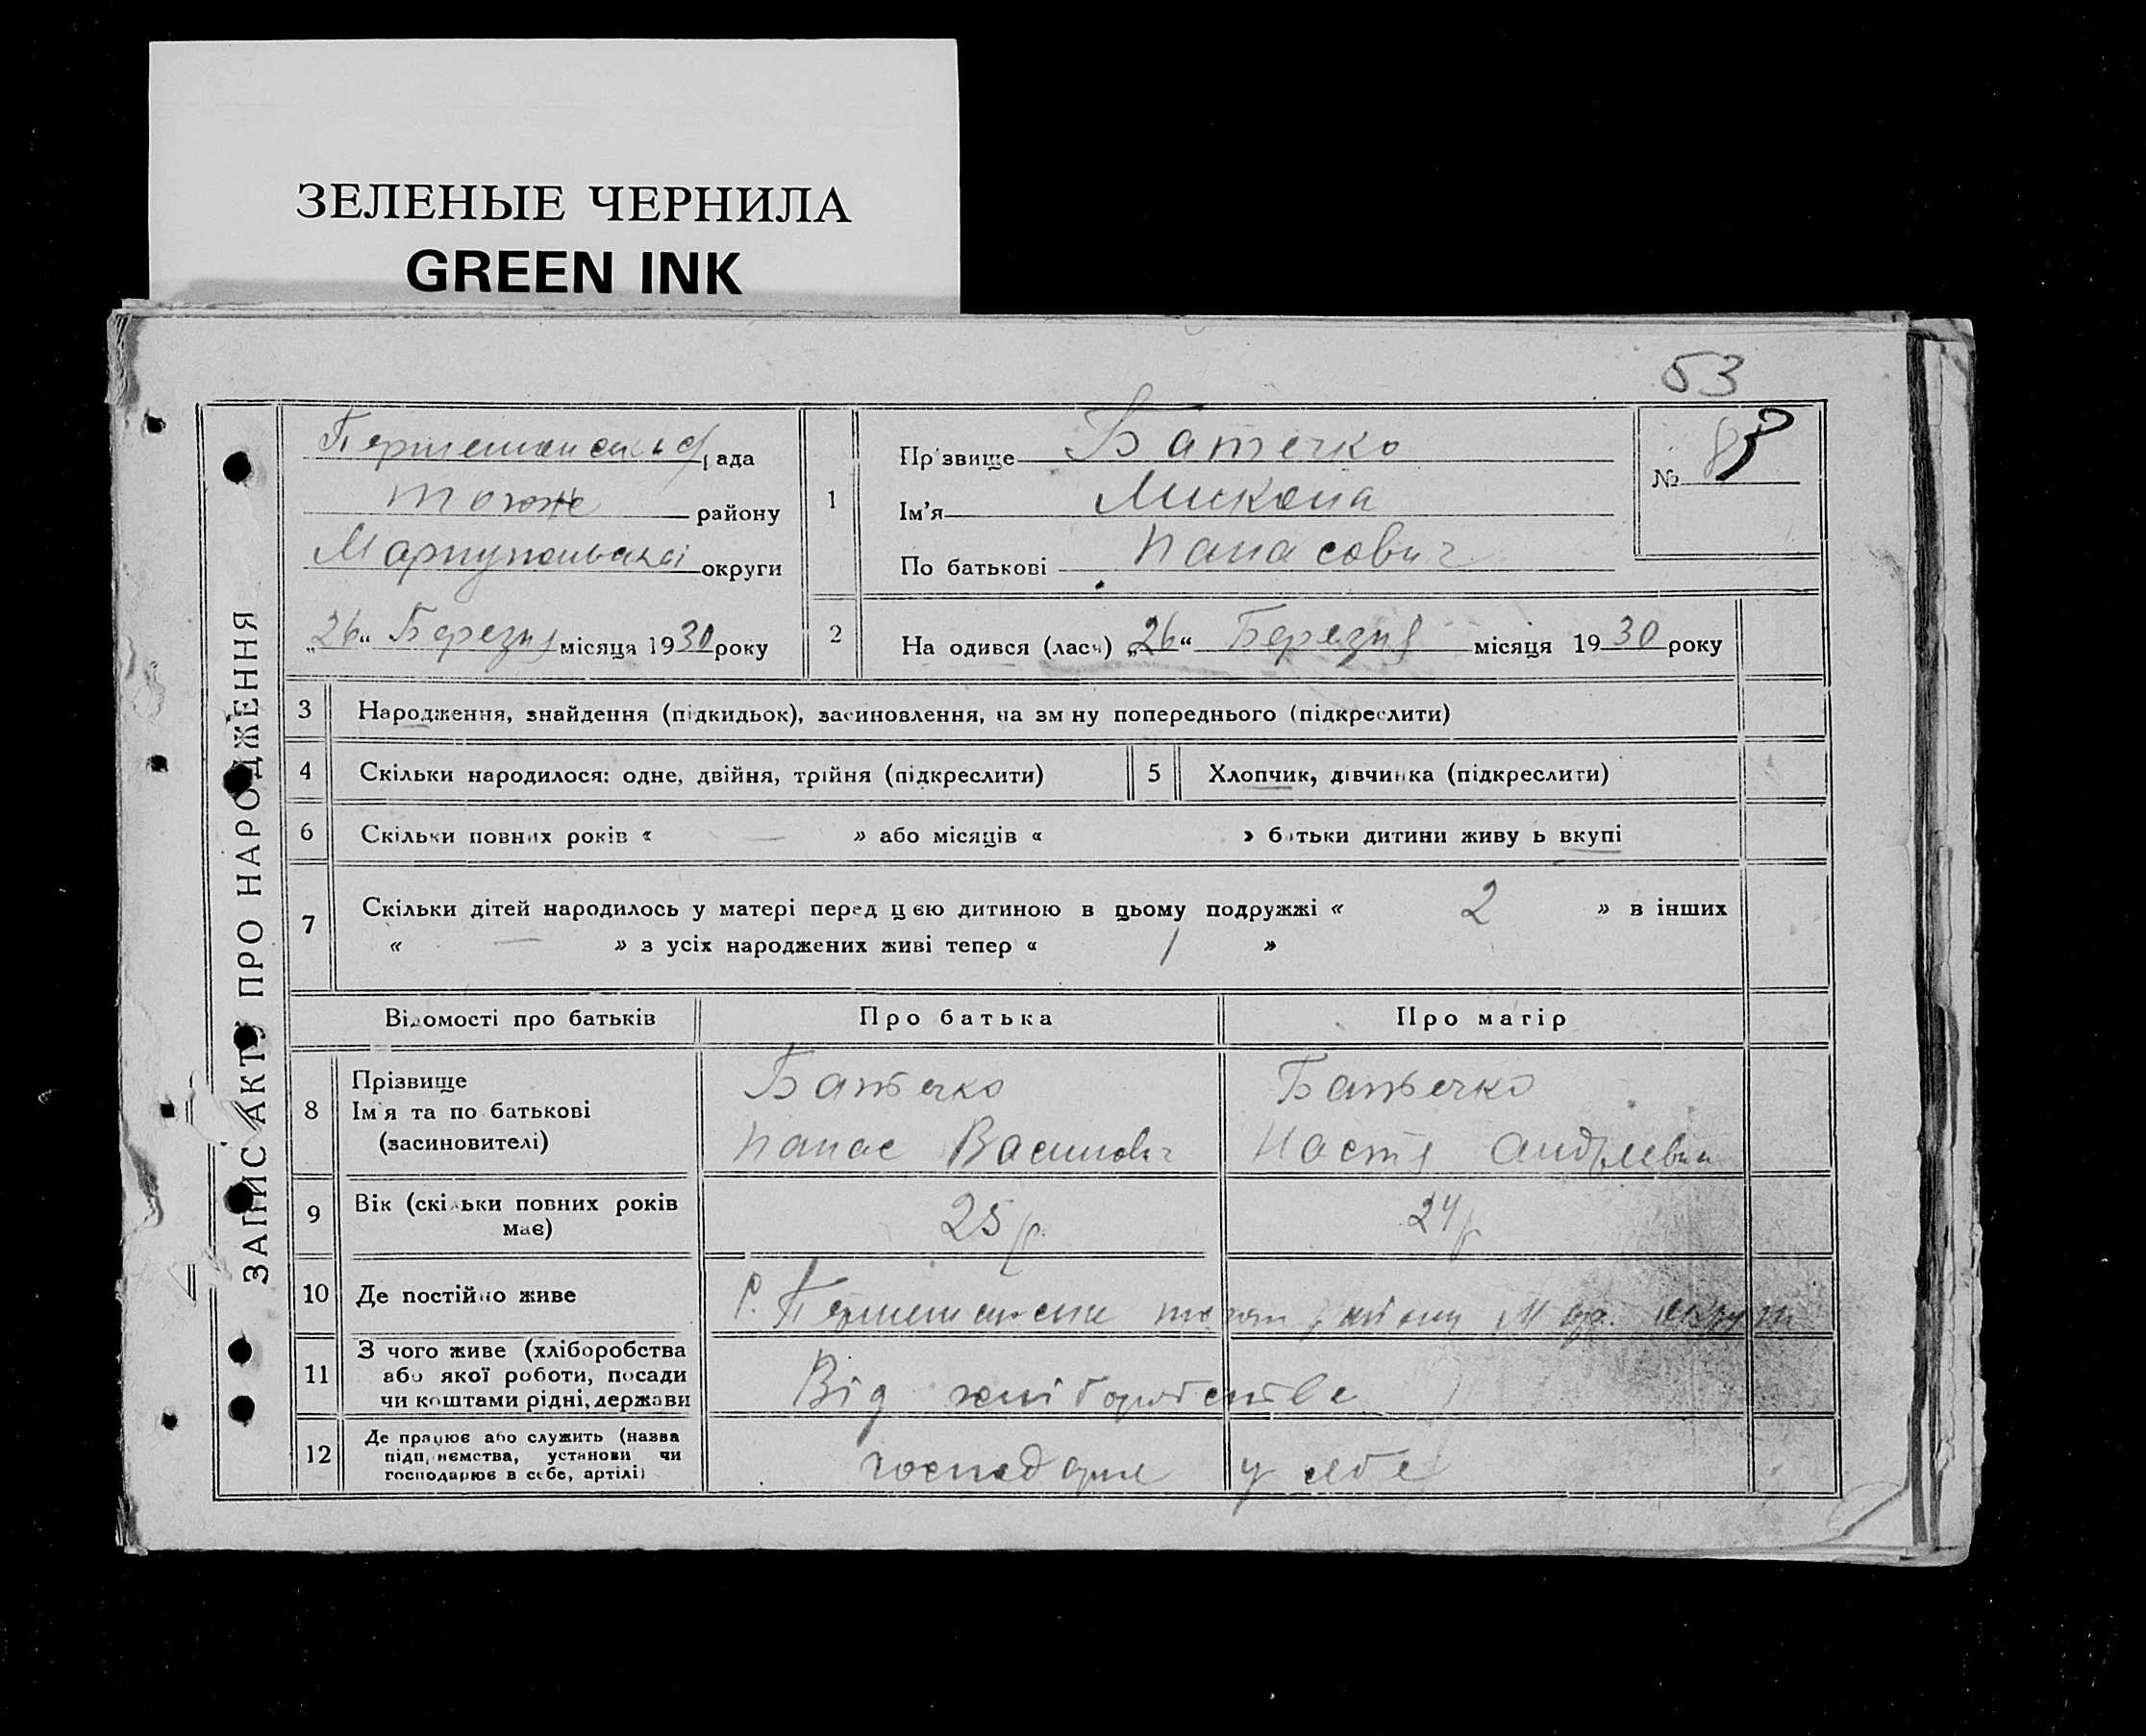 ЗЕЛЕНЫЕ ЧЕРНИЛА
GREEN INK
53
ЗАПИС АКТУ ПРО НАРОДЖЕННЯ
рада
тогоже району
Маріупольської округи
„26“ Березня місяця 1930 року
1
Прізвище Батечко
Ім'я Микола
По батькові Панасович
№
2
На одився (лась) „26“ Березня місяця 1930 року
3 Народження, знайдення (підкидьок), засиновлення, на зм ну попереднього (підкреслити)
4 Скільки народилося: одне, двійня, трійня (підкреслити)
5 Хлопчик, дівчинка (підкреслити)
6 Скільки повних років « — » або місяців « » батьки дитини живу ь вкупі
7 Скільки дітей народилось у матері перед цією дитиною в цьому подружжі « 2 » в інших
« — » з усіх народжених живі тепер « 1 »
Відомості про батьків
Про батька
Про матір
8 Прізвище
Ім'я та по батькові
(засиновителі)
Батечко
Панас Васильович
Батечко
Настя Андріевна
9 Вік (скільки повних років
має)
25 р.
24 р
10 Де постійно живе
С. району Мар. округи
11 З чого живе (хліборобства
або якої роботи, посади
чи коштами рідні, держави
Від хліборобства
12 Де працює або служить (назва
підп, иємства, установи чи
господарює в себе, артілі)
господарює у себе